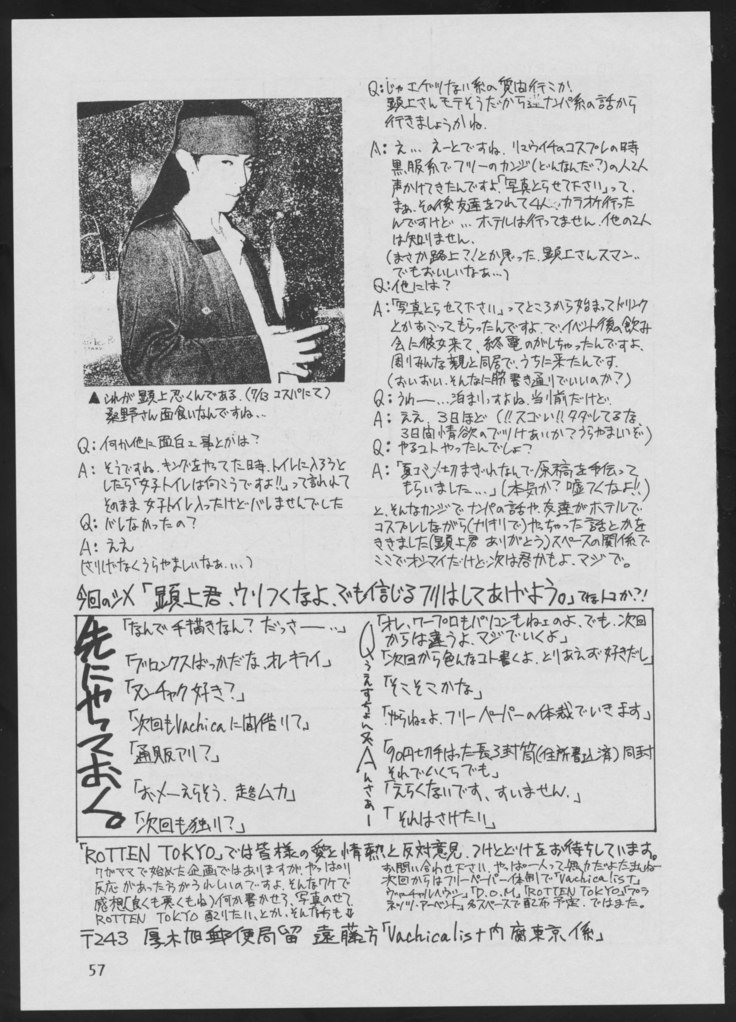 ▲これが顕上忍くんである。(7/13 コスパにて)
桑野さん面食いなんですね…
Q:何か他に面白え事とかは?
A:そうですね、キングをやってた時、トイレに入ろうと
したら「女子トイレは向こうですよ!!」って言われて
そのまま女子トイレ入ったけどバレませんでした
Q:バレなかったの?
A:ええ
(さりげなくうらやましいなあ…)
Q:じゃエゲツない系の質問行こか。
顕上さんモテそうだから逆ナンパ系の話から
行きましょうかね。
A:え… えーとですね、リュウイチのコスプレの時
黒服系でフリーのカンジ(どんなんだ?)の人2人
声かけてきたんですよ「写真とらせて下さい」って、
まぁ、その後友達をつれて4人でカラオケ行った
んですけど… ホテルは行ってません、他の2人
は知りません。
(まさか路上?!とか思った、顕上さんスマン…
でもおいしいなぁ…)
Q:他には?
A:「写真とらせて下さい」ってところから始まってドリンク
とかおごってもらったんですよ、で、イベント後の飲み
会に彼女来て、終電のがしちゃったんですよ、
周りみんな親と同居で、うちに来たんです。
(おいおい、そんなに筋書き通りでいいのか?)
Q:うわー…、泊まりっすよね、当り前だけど
A:ええ、3日ほど(!!スゴい!!タダレてるな、
3日間情欲のブツけあいか?うらやまいぞ)
Q:やるコトやったんでしょ?
A:「夏コミ〆切まぎわなんで原稿を手伝って
もらいました…」(本気か?嘘つくなよ!!)
と、そんなカンジでナンパの話や、友達がホテルで
コスプレしながら(ナリキリで)やっちゃった話とかを
ききました(顕上君ありがとう)スペースの関係で
ここでオシマイだけど次は君かもよ、マジで。
今回のシメ「顕上君、ウソつくなよ、でも信じるフリはしてあげよう。」てなトコか?!
先にやっておく。
Qうえすちょん&Aんさぁー
「なんで手描きなん?だっさー…」
「ブロンクスばっかだな、オレキライ」
「ヌンチャク好き?」
「次回もVachicaに間借りて」
「通販アリ?」
「おメーえらそう、超ムカ」
「次回も独り?」
「オレ、ワープロもパソコンもねェのよ、でも、次回
からは違うよ、マジでいくよ」
「次回から色んなコト書くよ、とりあえず好きだし」
「そこそこかな」
「やらねェよ、フリーペーパーの体裁でいきます」
「90円切手はった長3封筒(住所書込済)同封
それでいくらでも」
「えらくないです、すいません。」
「それはさけたい」
「ROTTEN TOKYO」では皆様の愛と情熱と反対意見、つけとどけをお待ちしています。
ワガママで始めた企画ではありますが、やっぱり
反応があったらうれしいのですよ、そんなワケで
感想(良くも悪くもね)何か書かせろ、写真のせて
ROTTEN TOKYO 配りたい、とか、そんな方も
お問い合わせ下さい、やっぱ一人って無力だよたぶんね
次回からはフリーペーパー体制で「Vachicalist」
「D.O.M」「ROTTEN TOKYO」「プラ
名スペースで配布予定、ではまた。
〒243 厚木旭郵便局留 遠藤方「Vachicalist内腐東京係」
57